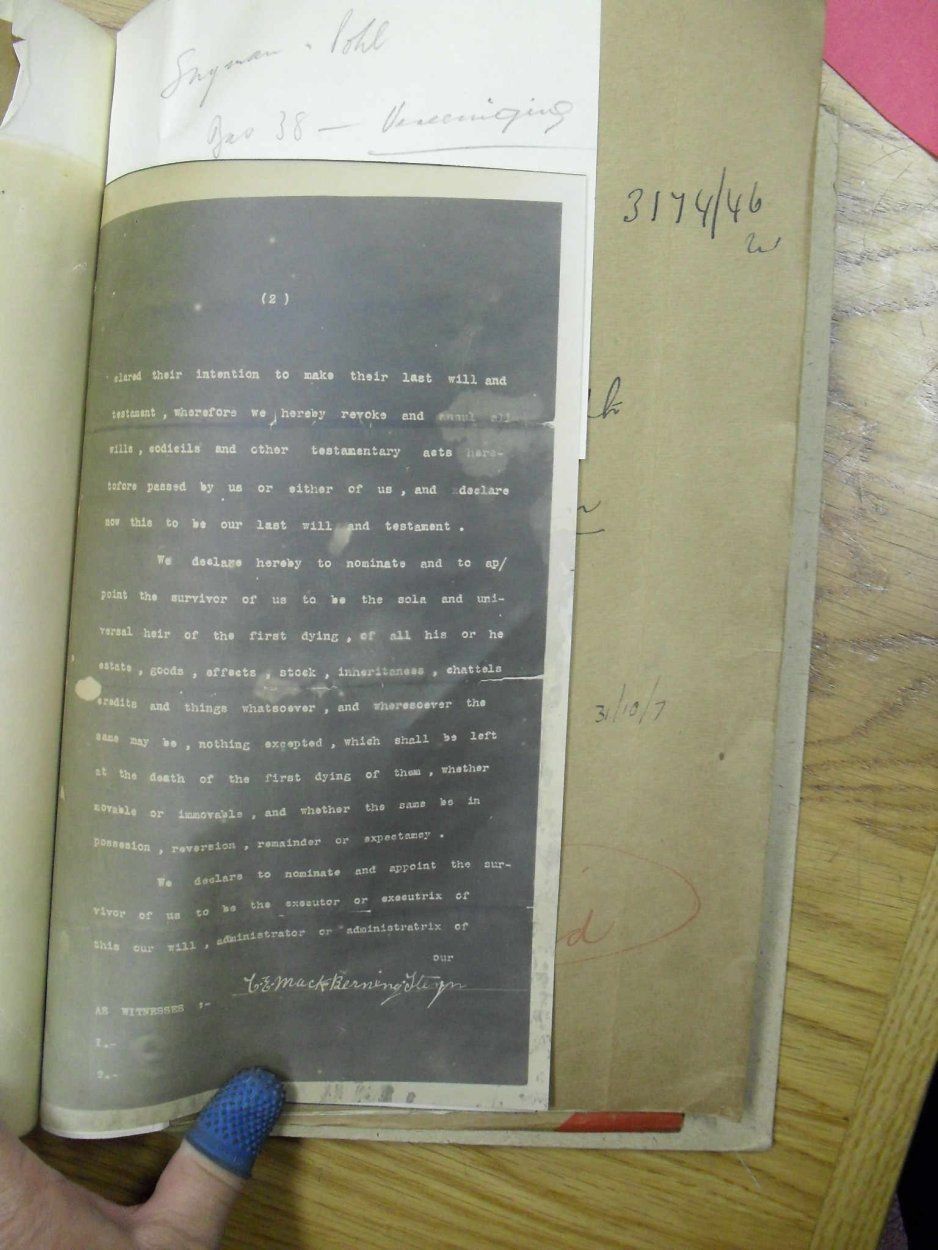 Snyman & Pohl
Box 38 — Vereeniging
3174/46
(2)
clared their intention to make their last will and
testament , wherefore we hereby revoke and annul all
wills , codicils and other testamentary acts here-
tofore passed by us or either of us , and declare
now this to be our last will and testament .
We declare hereby to nominate and to ap/
point the survivor of us to be the sola and uni-
versal heir of the first dying , of all his or he
estate , goods , effects , stock , inheritances , chattels
credits and things whatsoever , and wheresoever the
same may be , nothing excepted , which shall be left
at the death of the first dying of them , whether
movable or immovable , and whether the same be in
possesion , reversion , remainder or expectancy .
We declare to nominate and appoint the sur-
vivor of us to be the executor or executrix of
this our will , administrator or administratrix of
our
AS WITNESSES :-
1.-
2.-
31/10/7